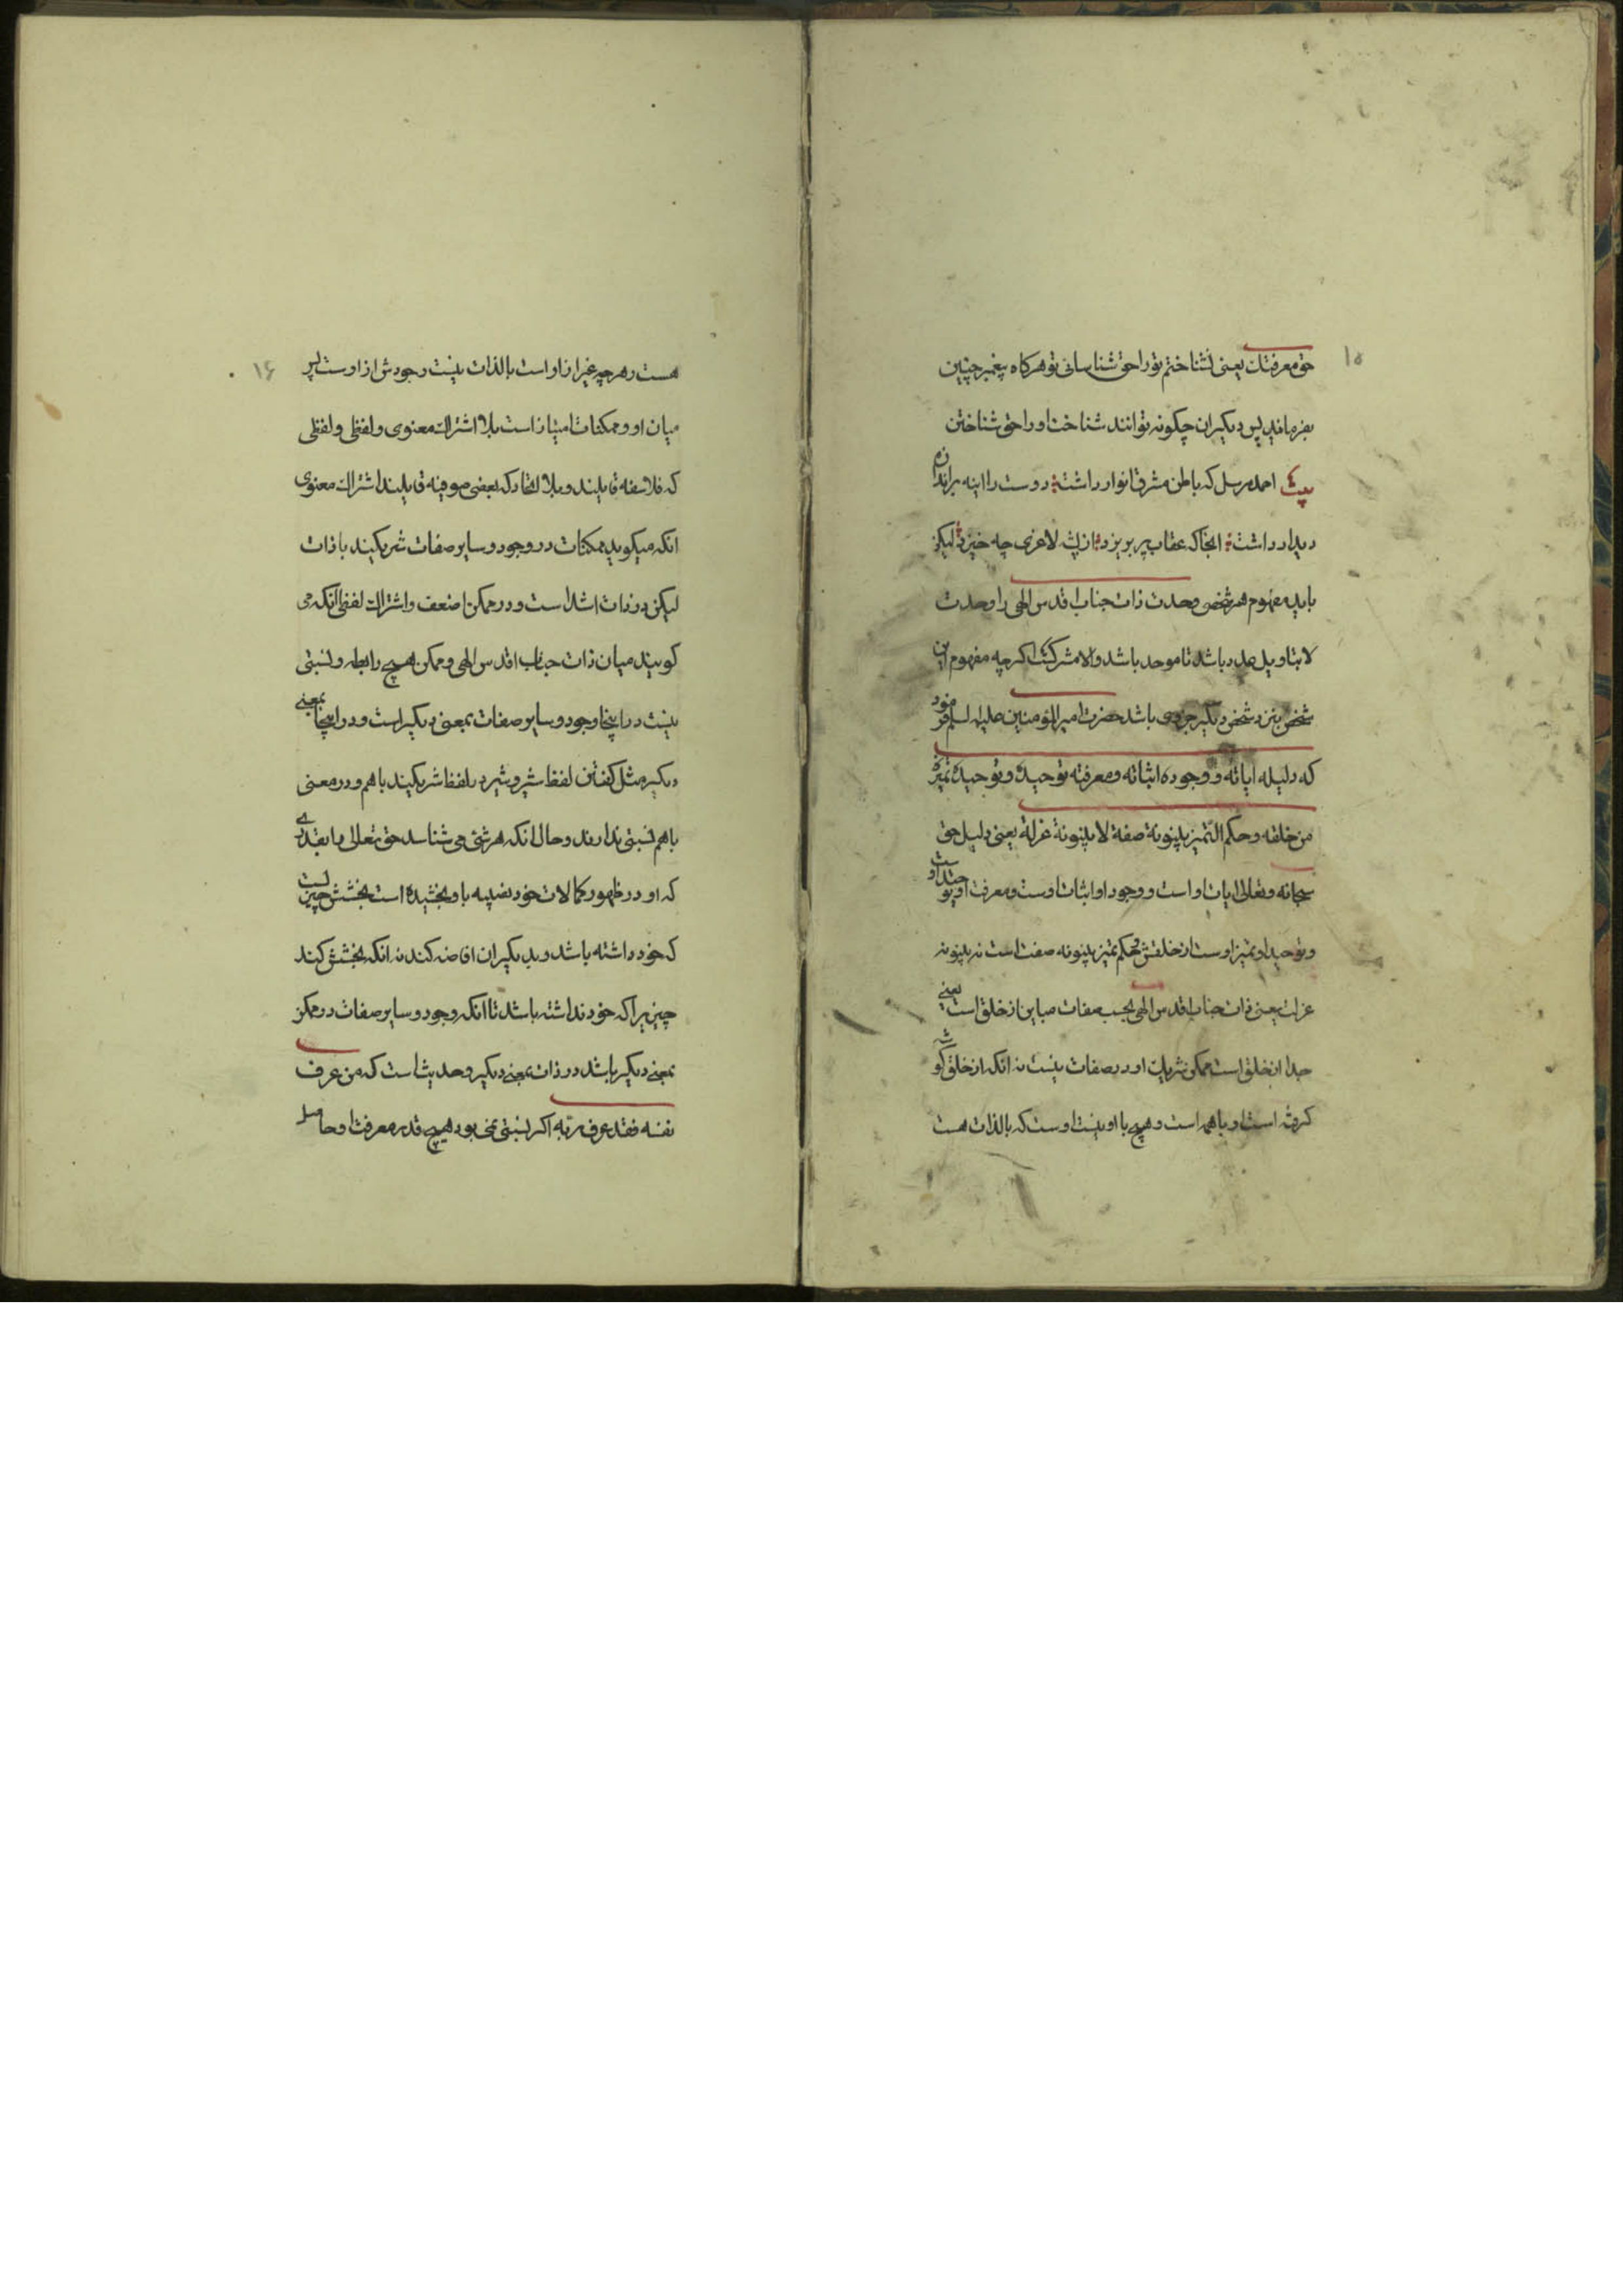 ۱۵
حق معرفتک یعنی نشناختم تو را حق شناسائی تو هرکاه پیغمبر چنین
بفرماید پس دیکران چکونه توانند شناخت او را حق شناختن
بیت احمد مرسل که باطن مشرق انوار داشت دوست را اینه براندازه
دیدار داشت انجا که عقاب پر بریزد از پشه لاغری چه خیزد لیکن
باید مفهوم هر شخص وحدت ذات جناب اقدس الهی را وحدت
لا بتاویل عدد باشد تا موحد باشد والا مشرکست اکرچه مفهوم این
شخص بنزد شخص دیکر جزوی باشد حضرت امیرالمؤمنین علیه السلم فرمود
که دلیله ایاته و وجوده اثباته ومعرفته توحیده وتوحیده تمیزه
من خلقه وحکم التمیز بینونة صفة لا بینونة عزلة یعنی دلیل حق
سبحانه وتعالی ایات او است و وجود او اثبات اوست ومعرفت او توحید اوست
وتوحید او تمیز اوست از خلقش وحکم تمیز بینونه صفت است نه بینونه
عزلت یعنی ذات جناب اقدس الهی بحسب صفات مباین از خلق است یعنی
جدا از خلق است ممکن شریک او در صفات نیست نه انکه از خلق کوشه
کرفته است او با همه است وهیچ با او نیست اوست که بالذات هست
۱۶
هست وهرچه غیر از او است بالذات نیست وجودش از اوست پس
میان او وممکنات امتیاز است بلا اشتراک معنوی ولفظی ولفظی
که فلاسفه قایلند وبلا اتحاد که بعضی صوفیه قایلند اشتراک معنوی
انکه میکوید ممکنات در وجود وسایر صفات شریکیند با ذات
لیکن در ذات اشد است ودر ممکن اضعف واشتراک لفظی انکه می
کویند میان ذات جناب اقدس الهی وممکن هیچ رابطه ونسبتی
نیست در اینجا وجود وسایر صفات بمعنی دیکر است ودر اینجا بمعنی
دیکر مثل کفتن لفظ شیر وشیر در لفظ شریکیند باهم ودر معنی
باهم نسبتی ندارند وحال انکه هر شئ می شناسد حق تعالی را بقدری
که او در ظهور کمالات خود نصیبه باو بخشیده است بخشش چیزیست
که خود داشته باشد وبدیکران افاضه کند نه انکه بخشش کند
چیزیرا که خود نداشته باشد تا انکه وجود وسایر صفات در ممکن
بمعنی دیکر باشد در ذات بمعنی دیکر وحدیث است که من عرف
نفسه فقد عرف ربه اکر نسبتی نمی بود هیچ قدر معرفت او حاصل